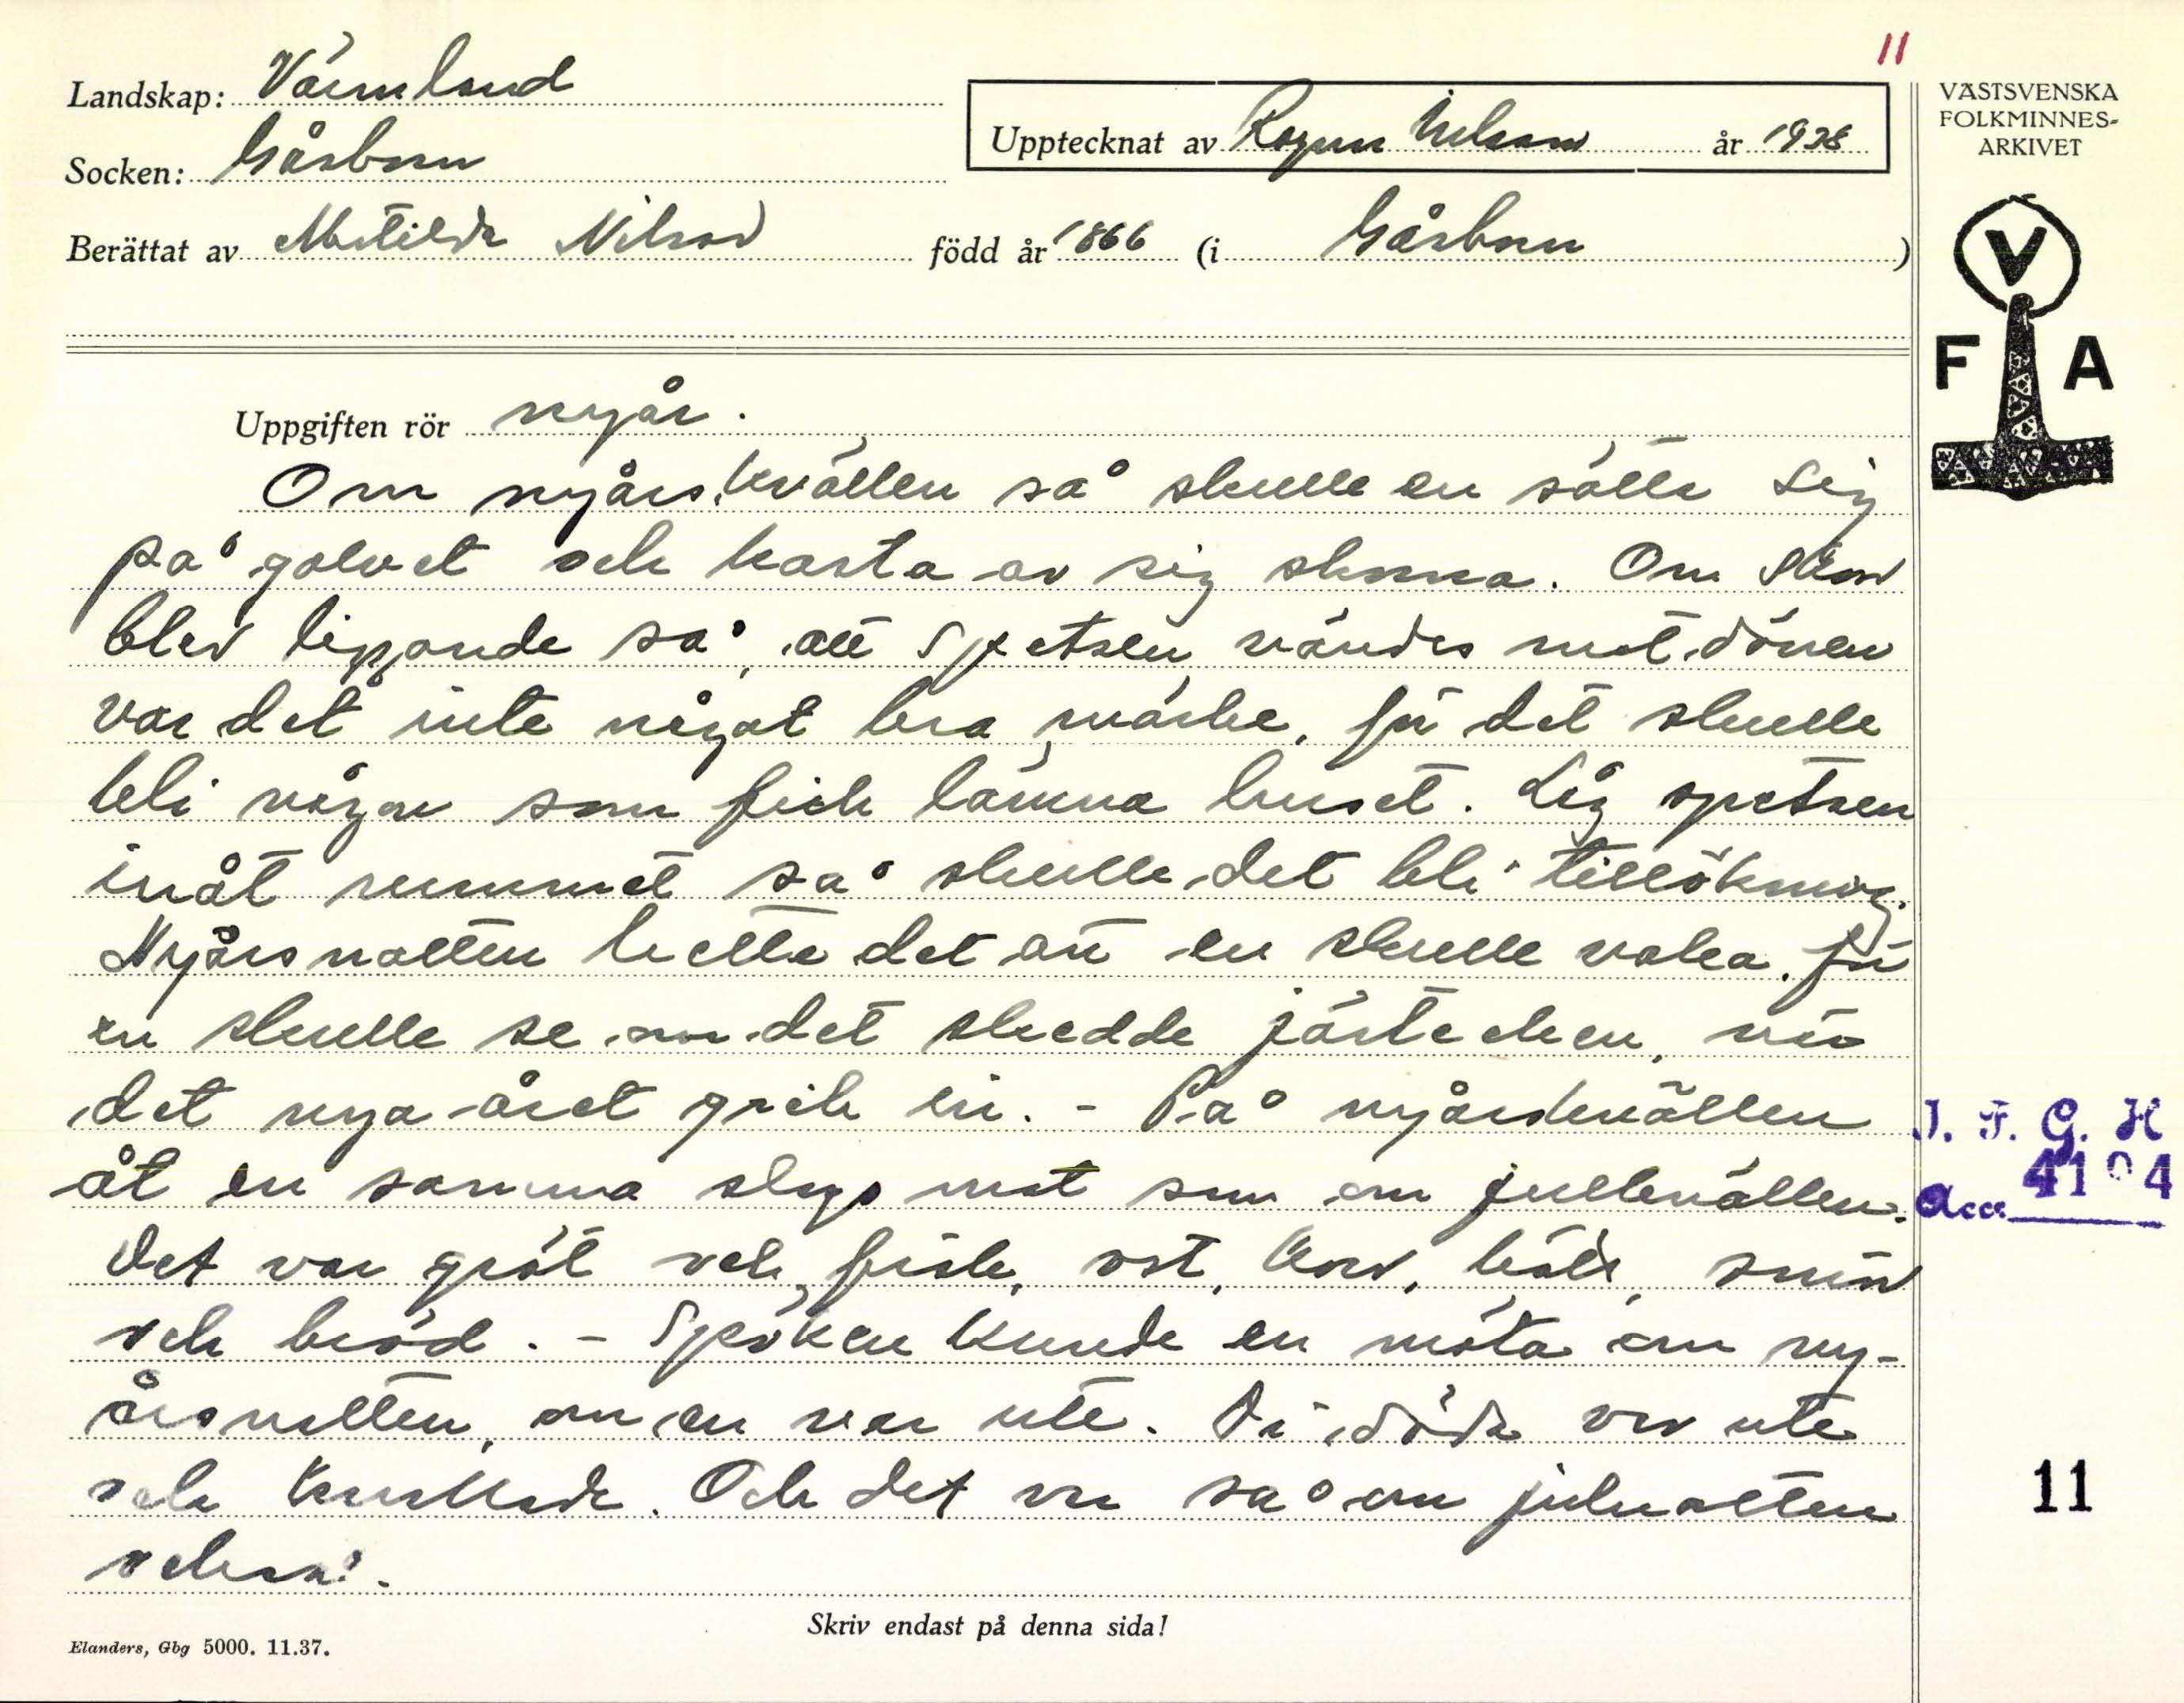 11
Landskap: Värmland
Socken: Gåsborn
Upptecknat av Ragnar Nilsson år 1938
Berättat av Matilda Nilsson född år 1866 (i Gåsborn)
VÄSTSVENSKA
FOLKMINNES-
ARKIVET
V
F A
Uppgiften rör nyår.
Om nyårskvällen så skulle en sätta sig
på golvet och kasta av sig skorna. Om skon
blev liggande så, att spetsen vändes mot dörren
var det inte något bra märke, för det skulle
bli någon som fick lämna huset. Låg spetsen
inåt rummet så skulle det bli tillökning.
Nyårsnatten hette det att en skulle vaka. För
en skulle se om det skedde järtecken, när
det nya året gick in. - På nyårskvällen
åt en samma slags mat som om julkvällen.
Det var gröt och fisk, ost, korv, kött, smör
och bröd. - Spöken kunde en möta om ny-
årsnatten, om en var ute. Di döda var ute
och knallade. Och det var så om julnatten
också.
I. F. G. H
Acc. 4104
11
Skriv endast på denna sida!
Elanders, Gbg 5000. 11.37.